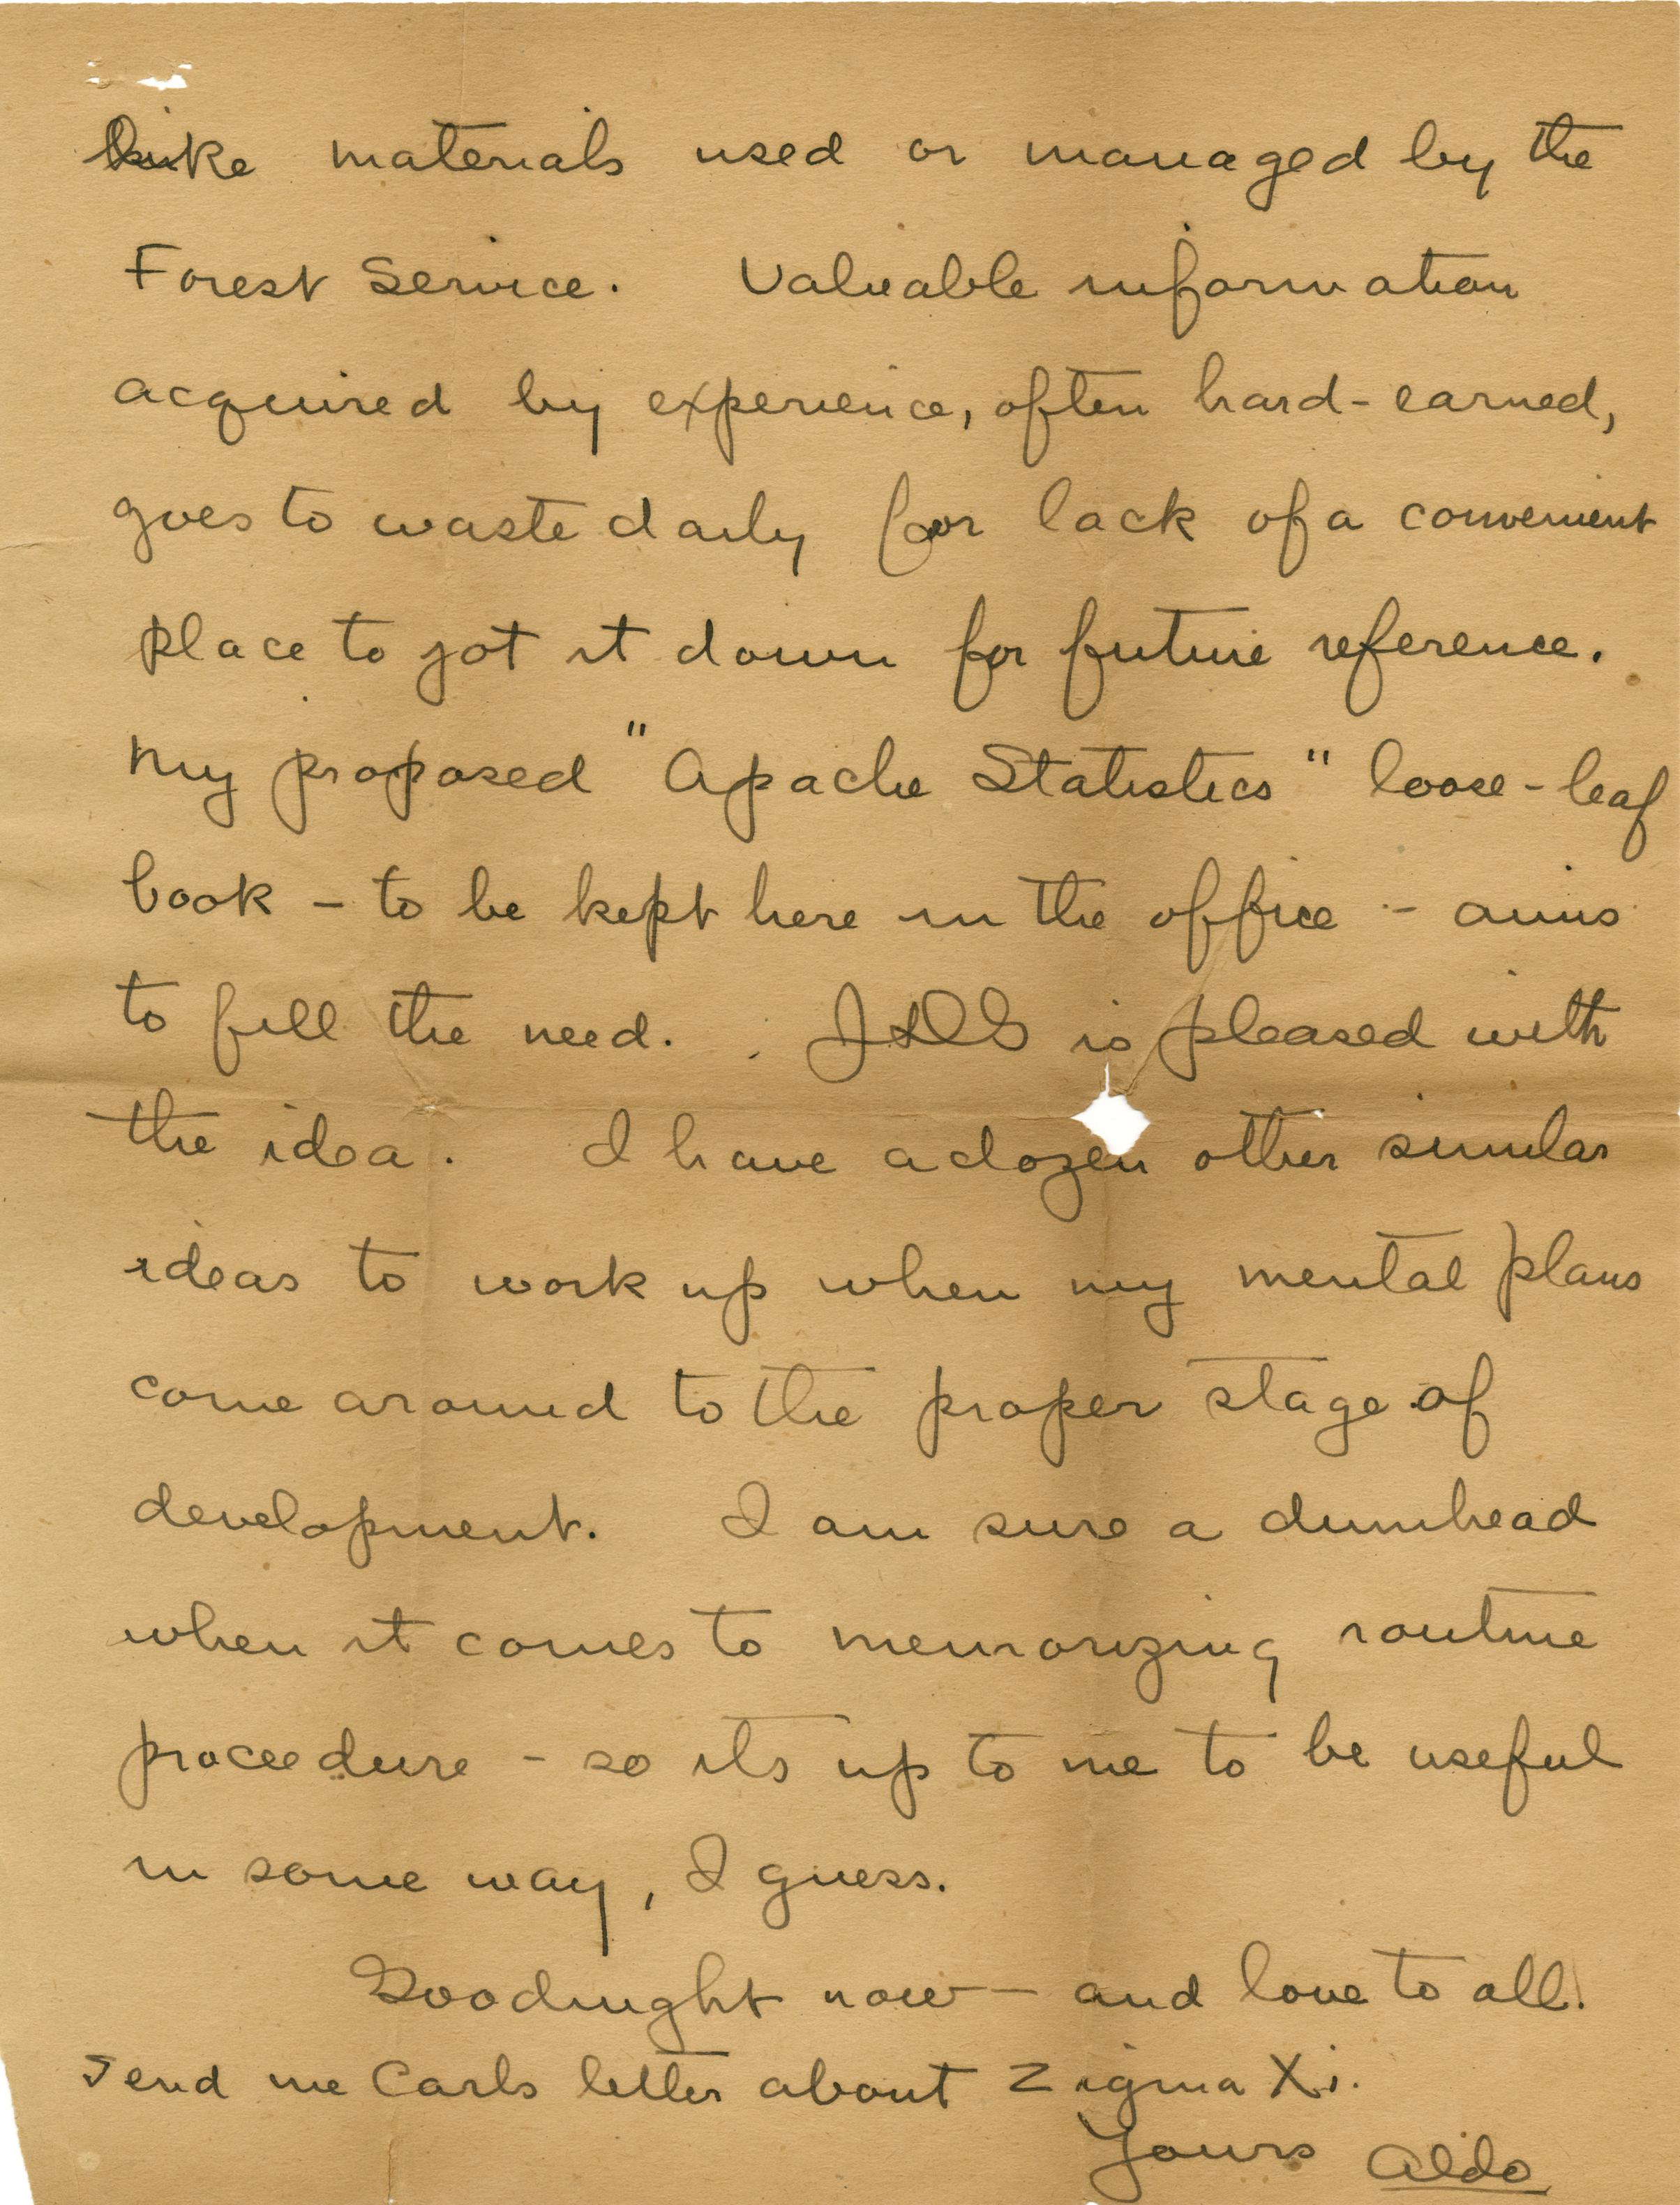 like materials used or managed by the
Forest Service. Valuable information
acquired by experience, often hard-earned,
goes to waste daily for lack of a convenient
place to jot it down for future reference.
My proposed "Apache Statistics" loose-leaf
book - to be kept here in the office - aims
to fill the need. is pleased with
the idea. I have a dozen other similar
ideas to work up when my mental plans
come around to the proper stage of
development. I am sure a dumhead
when it comes to memorizing routine
proceedure - so its up to me to be useful
in some way, I guess.
Goodnight now - and love to all.
Send me Carls letter about Zigma Xi.
Yours Aldo